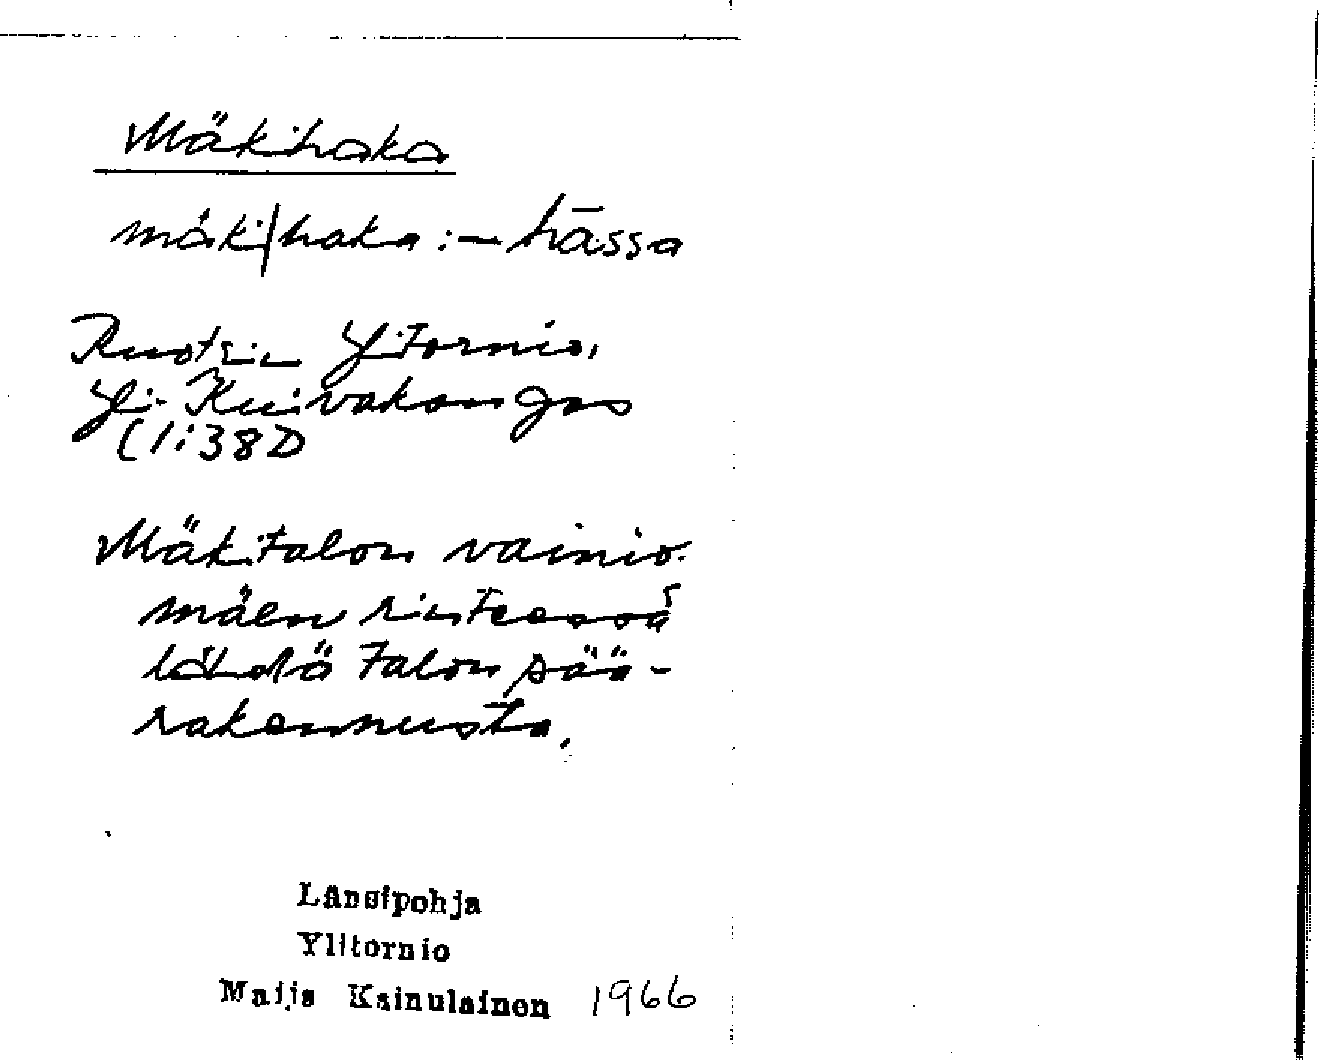 Mäkihaka
mäki|haka :– hāssa
Ruotsin Ylitornio,
Yli-Kuivakangas
(1:38D
Mäkitalon vainio-
mäen rinteessä
lähdö talon pää-
rakennusta.
Länsipohja
Ylitornio
Maija Kainulainen 1966